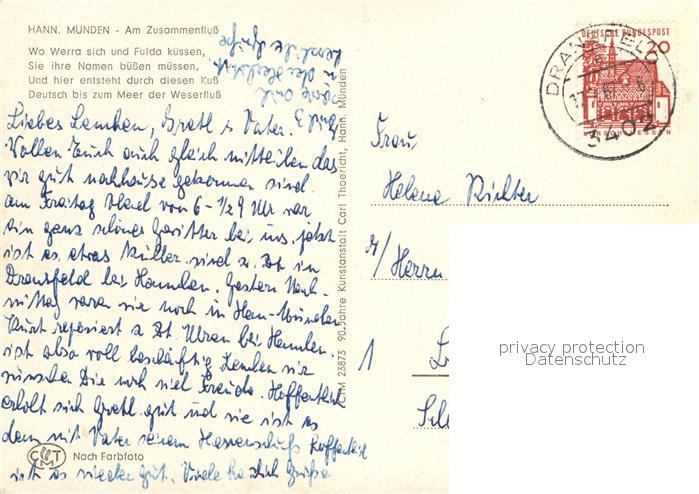 HANN. MÜNDEN - Am Zusammenfluß
Wo Werra sich und Fulda küssen,
Sie ihre Namen büßen müssen,
Und hier entsteht durch diesen Kuß
Deutsch bis zum Meer der Weserfluß
herzliche Grüße
Liebes Lenchen, Gretl u Vater.
Wollen Euch auch gleich mitteilen das
wir gut nachhause gekommen sind.
am Freitag Abend von 6-1/2 9 Uhr war
ein ganz schönes Gewitter bei uns. jetzt
ist es etwas kühler. sind z. Zt in
Dransfeld bei Hannelen. Gestern Nach-
mittag waren wir noch in Han-Münden
Kurt repariert z Zt Uhren bei Hannelen.
ist also voll beschäftig Lenchen wir
wünschen Dir noch viel Freude. Hoffentlich
erholt sich Gretl gut und wie ist es
denn mit Vater seinem Hexenschuß hoffentlich
ist es wieder gut. Viele herzlich Grüße
Nach Farbfoto
CTM
CTM 23873 90 Jahre Kunstanstalt Carl Thoericht, Hann. Münden
DEUTSCHE BUNDESPOST
20
DRANSFELD
3402
Frau
Helena Richter
b/ Herrn
1
privacy protection
Datenschutz